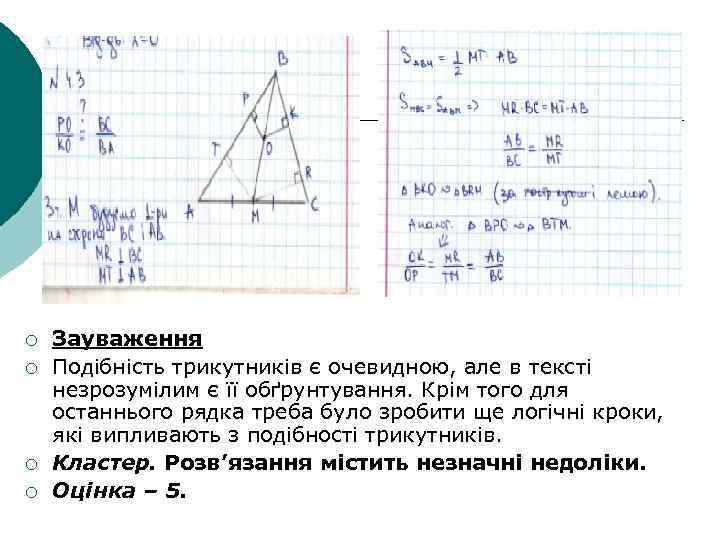 Від-дь: λ=0
№ 4.3
?
PO/KO = BC/BA
З т. M будуємо ⊥-ри
на сторони BC і AB
MR ⊥ BC
MT ⊥ AB
B
P
K
O
T
R
A
M
C
S_ABM = 1/2 MT · AB
S_MBC = S_ABM => MR · BC = MT · AB
AB/BC = MR/MT
△ BKO ∾ △ BRM (за лемою).
Аналог. △ BPO ∾ BTM.
OK/OP = MR/TM = AB/BC
Зауваження
Подібність трикутників є очевидною, але в тексті
незрозумілим є її обґрунтування. Крім того для
останнього рядка треба було зробити ще логічні кроки,
які випливають з подібності трикутників.
Кластер. Розв’язання містить незначні недоліки.
Оцінка – 5.